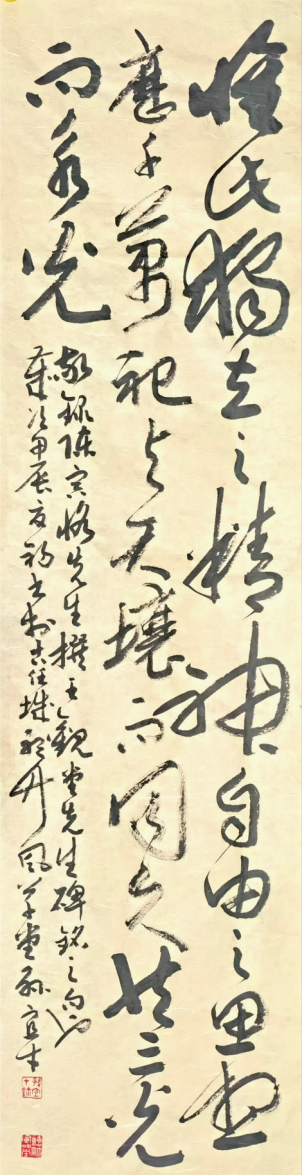 惟此獨立之精神自由之思想
歷千萬祀与天壤而同久共三光
而永光
敬錄陳寅恪先生撰王觀堂先生碑銘之句
歲次甲辰夏初書於古任城
風草堂孫宜才